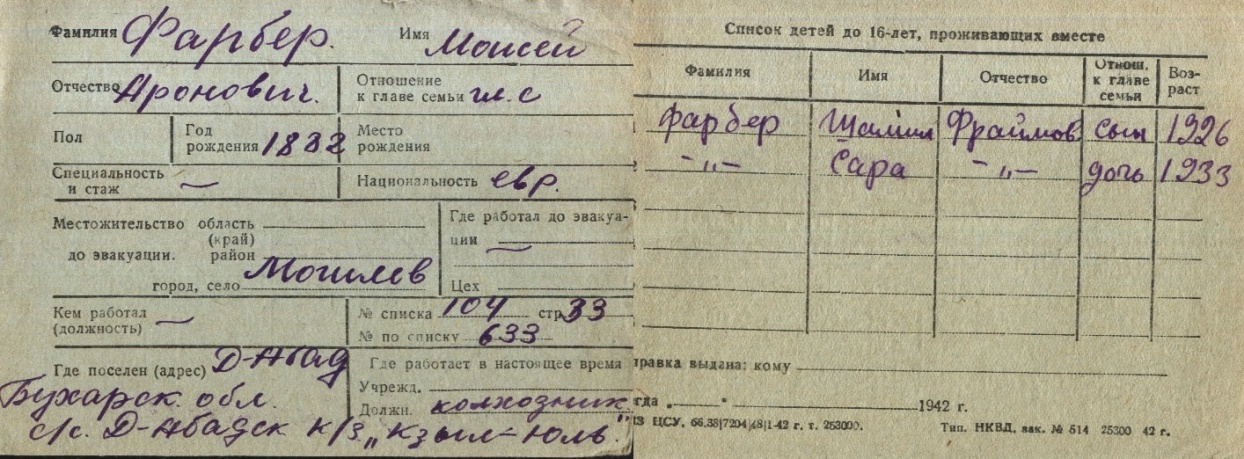 Фамилия Фарбер. Имя Моисей
Отчество Аронович. Отношение к главе семьи гл. с
Пол Год рождения 1882 Место рождения
Специальность и стаж — Национальность евр.
Местожительство область
(край)
до эвакуации. район
город, село Могилев
Где работал до эвакуа-
ции —
Цех
Кем работал
(должность) —
№ списка 104 стр. 33
№ по списку 633
Где поселен (адрес) Д-Абад
Бухарск. обл.
с/с. Д-Абадск к/з „Кзыл-Юль."
Где работает в настоящее время
Учрежд.
Должн. колхозник
Список детей до 16-лет, проживающих вместе
Фамилия Имя Отчество Отнош. к главе семьи Воз-раст
Фарбер Фраймов сын 1926
-„- Сара -„- дочь 1933
правка выдана: кому
гда „ " 1942 г.
ЦСУ, 1-42 г. т. 253000. Тип. НКВД, зак. № 514 25300 42 г.